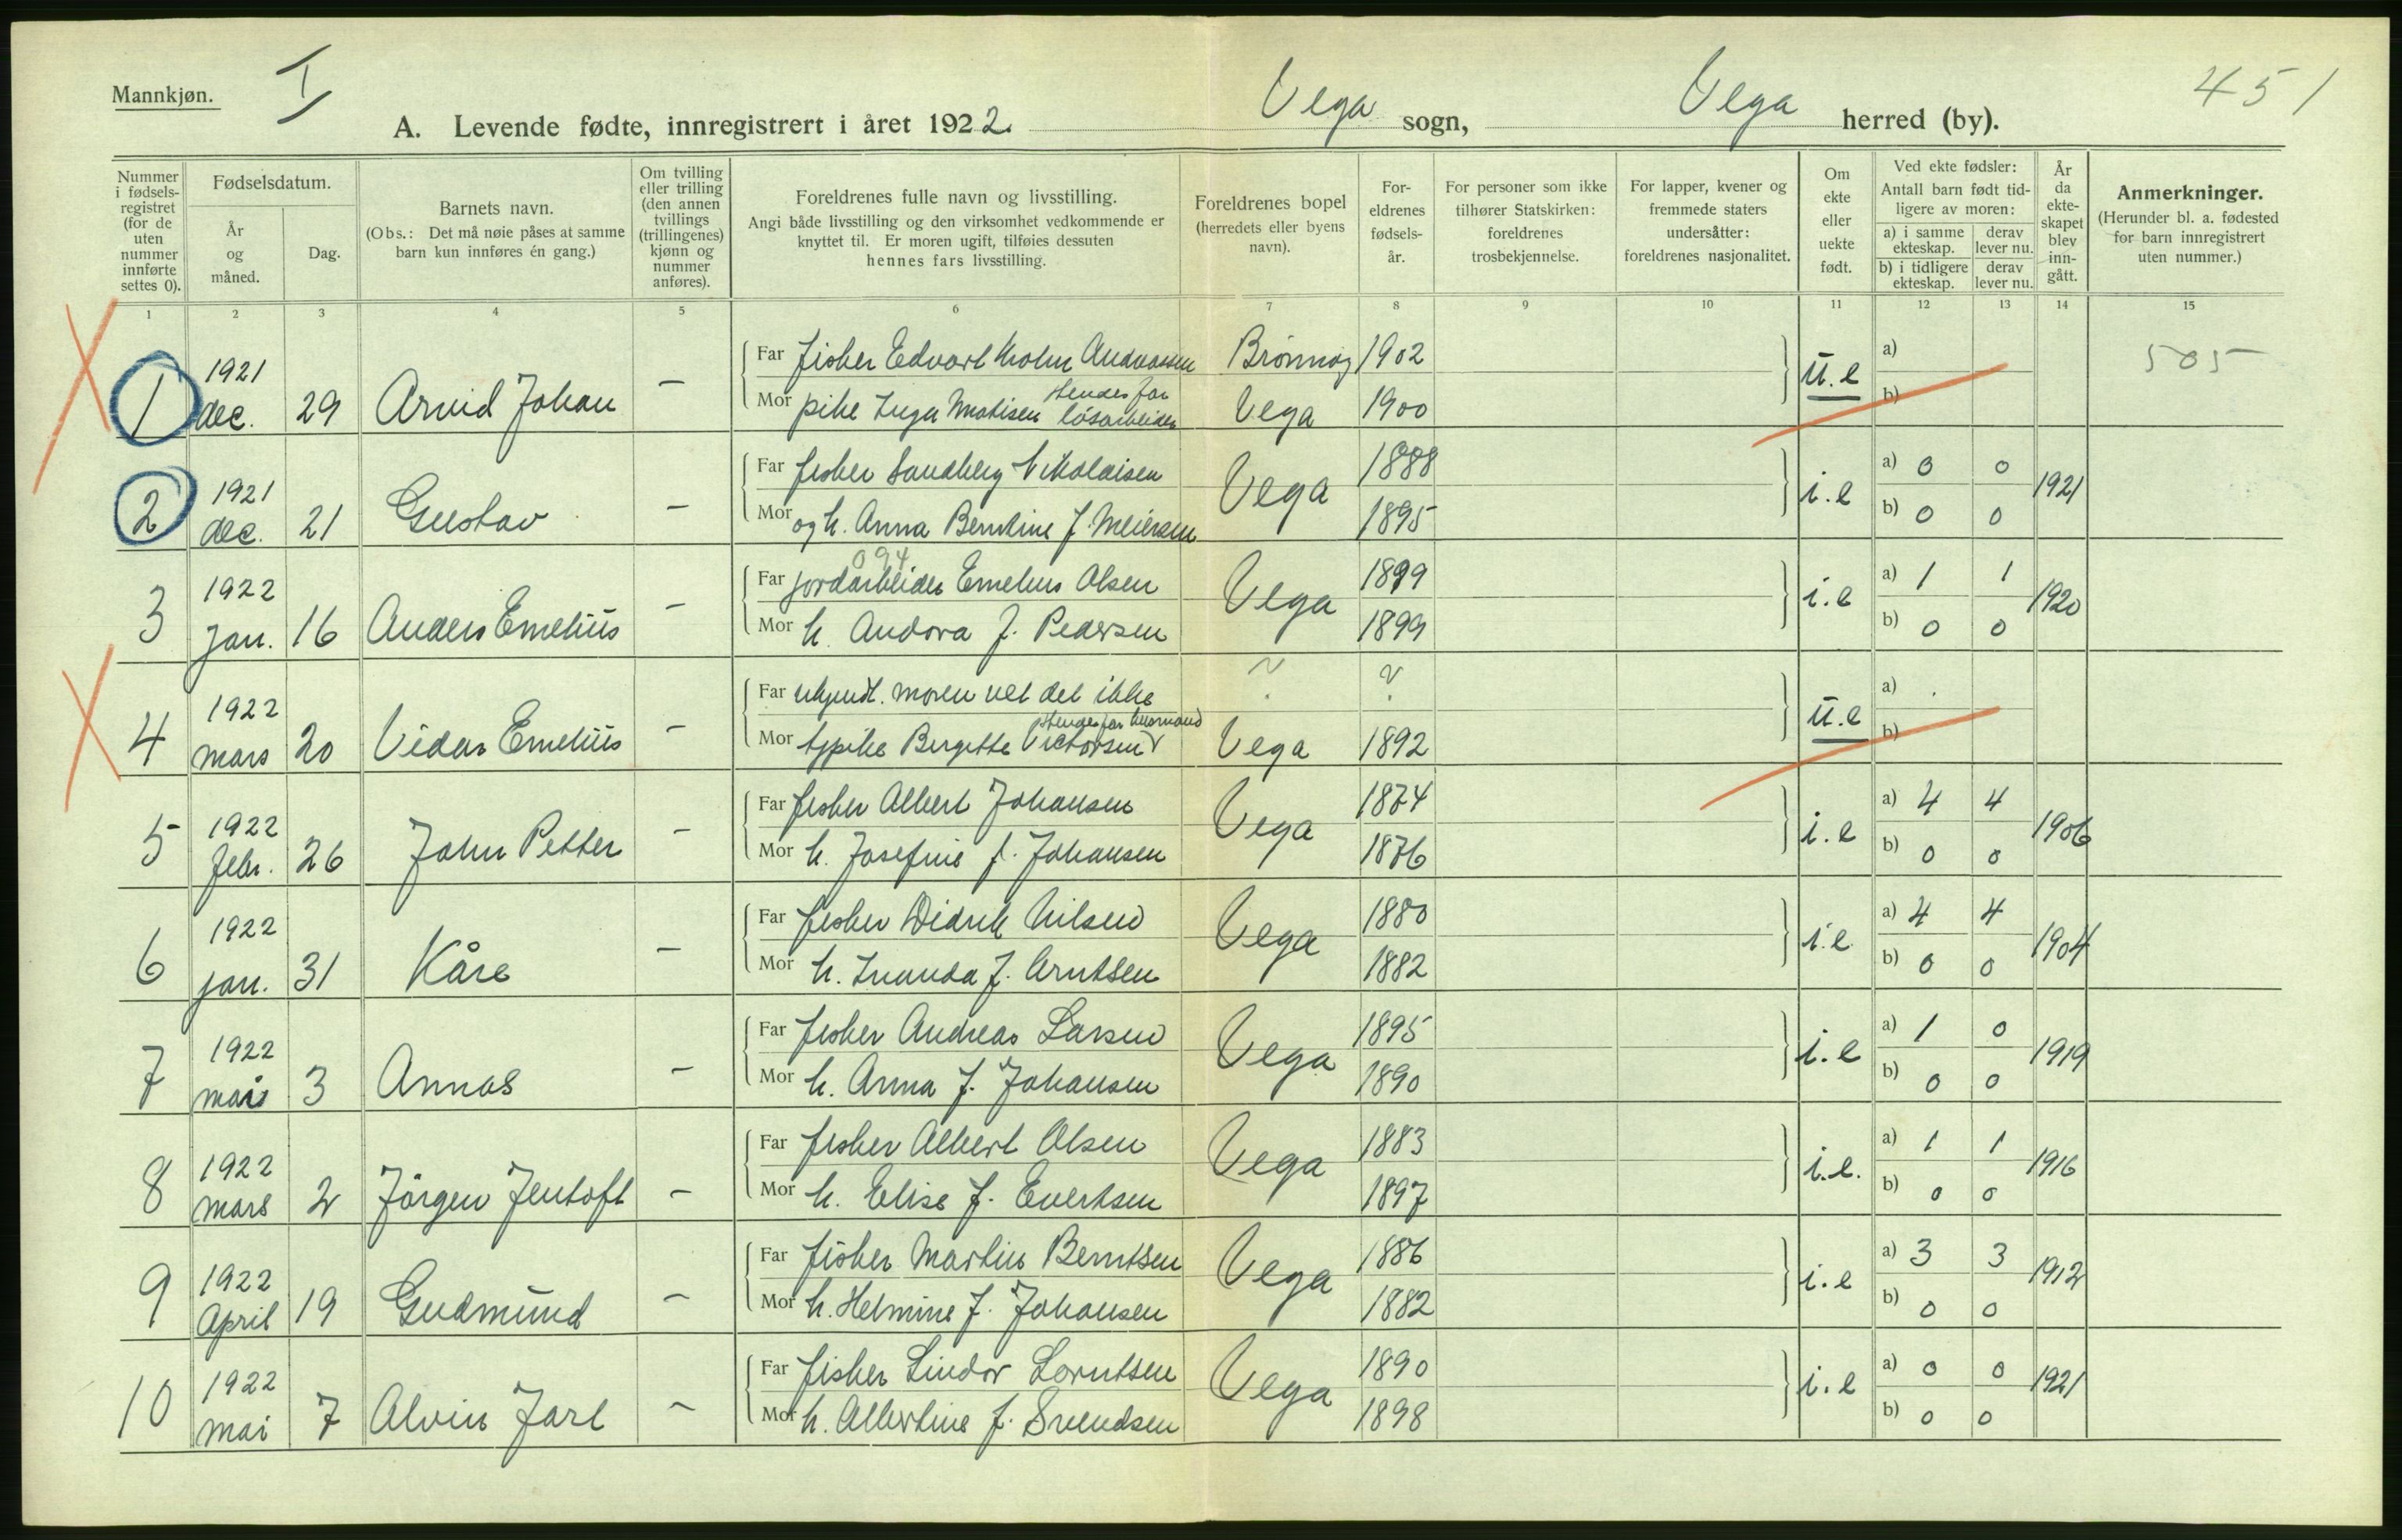 Mannkjøn.
I
451
A. Levende fødte, innregistrert i året 1922. Vega sogn, Vega herred (by).
Nummer i fødselsregistret (for de uten nummer innførte settes 0).
Fødselsdatum.
År og måned.
Dag.
Barnets navn.
(Obs.: Det må nøie påses at samme barn kun innføres én gang.)
Om tvilling eller trilling (den annen tvillings (trillingenes) kjønn og nummer anføres).
Foreldrenes fulle navn og livsstilling.
Angi både livsstilling og den virksomhet vedkommende er knyttet til. Er moren ugift, tilføies dessuten hennes fars livsstilling.
Foreldrenes bopel (herredets eller byens navn).
Foreldrenes fødselsår.
For personer som ikke tilhører Statskirken: foreldrenes trosbekjennelse.
For lapper, kvener og fremmede staters undersåtter: foreldrenes nasjonalitet.
Om ekte eller uekte født.
Ved ekte fødsler: Antall barn født tidligere av moren:
a) i samme ekteskap. derav lever nu.
b) i tidligere ekteskap. derav lever nu.
År da ekteskapet blev inngått.
Anmerkninger.
(Herunder bl. a. fødested for barn innregistrert uten nummer.)
1 2 3 4 5 6 7 8 9 10 11 12 13 14 15
1 1921 dec. 29 Arvid Johan – Far fisker Edvart Holm Andreassen Brønnøy 1902 u.e a) 505
Mor pike Inga Matisen Hendes far løsarbeider Vega 1900 b)
2 1921 dec. 21 Gustav – Far fisker Sandberg Nikolaisen Vega 1888 i.e a) 0 0 1921
Mor og h. Anna Berntine f. Meiersen 1895 b) 0 0
094
3 1922 jan. 16 Anders Emelius – Far jordarbeider Emelius Olsen Vega 1899 i.e a) 1 1 1920
Mor h. Andora f. Pedersen 1899 b) 0 0
4 1922 mars 20 Vidar Emelius – Far ukjendt. moren vet det ikke ? ? u.e a)
Mor pike Bergitte Victorsen Hendes far husmand Vega 1892 b)
5 1922 febr. 26 John Petter – Far fisker Albert Johansen Vega 1874 i.e a) 4 4 1906
Mor h. Josefine f. Johansen 1876 b) 0 0
6 1922 jan. 31 Kåre – Far fisker Didrik Nilsen Vega 1880 i.e a) 4 4 1904
Mor h. Inanda f. Arntsen 1882 b) 0 0
7 1922 mars 3 Annas – Far fisker Andreas Larsen Vega 1895 i.e a) 1 0 1919
Mor h. Anna f. Johansen 1890 b) 0 0
8 1922 mars 2 Jörgen Jentoft – Far fisker Albert Olsen Vega 1883 i.e. a) 1 1 1916
Mor h. Elise f. Evertsen 1897 b) 0 0
9 1922 April 19 Gudmund – Far fisker Martin Berntsen Vega 1886 i.e a) 3 3 1912
Mor h. Helmine f. Johansen 1882 b) 0 0
10 1922 mai 7 Alvin Jarl – Far fisker Lindor Lorntsen Vega 1890 i.e a) 0 0 1921
Mor h. Albertine f. Svendsen 1898 b) 0 0